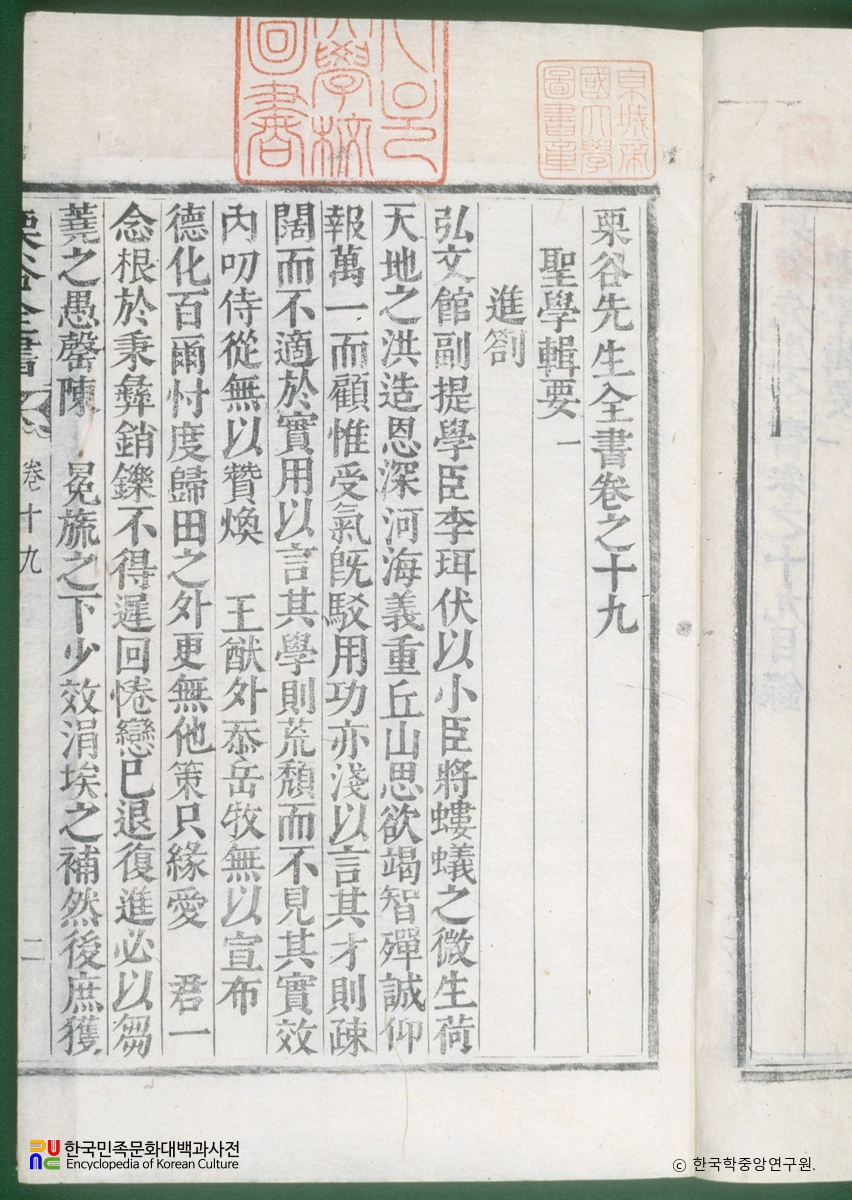 栗谷先生全書卷之十九
聖學輯要 一
進劄
弘文館副提學臣李珥伏以小臣將螻蟻之微生荷
天地之洪造恩深河海義重丘山思欲竭智殫誠仰
報萬一而顧惟受氣旣駁用功亦淺以言其才則疎
闊而不適於實用以言其學則荒頹而不見其實效
內叨侍從無以贊煥 王猷外忝岳牧無以宣布
德化百爾忖度歸田之外更無他策只緣愛 君一
念根於秉彝銷鑠不得遲回惓戀已退復進必以芻
蕘之愚罄陳 冕旒之下少效涓埃之補然後庶獲
栗谷全書 卷十九 二
京城帝
國大學
圖書章
學校
圖書
한국민족문화대백과사전
Encyclopedia of Korean Culture
ⓒ 한국학중앙연구원.